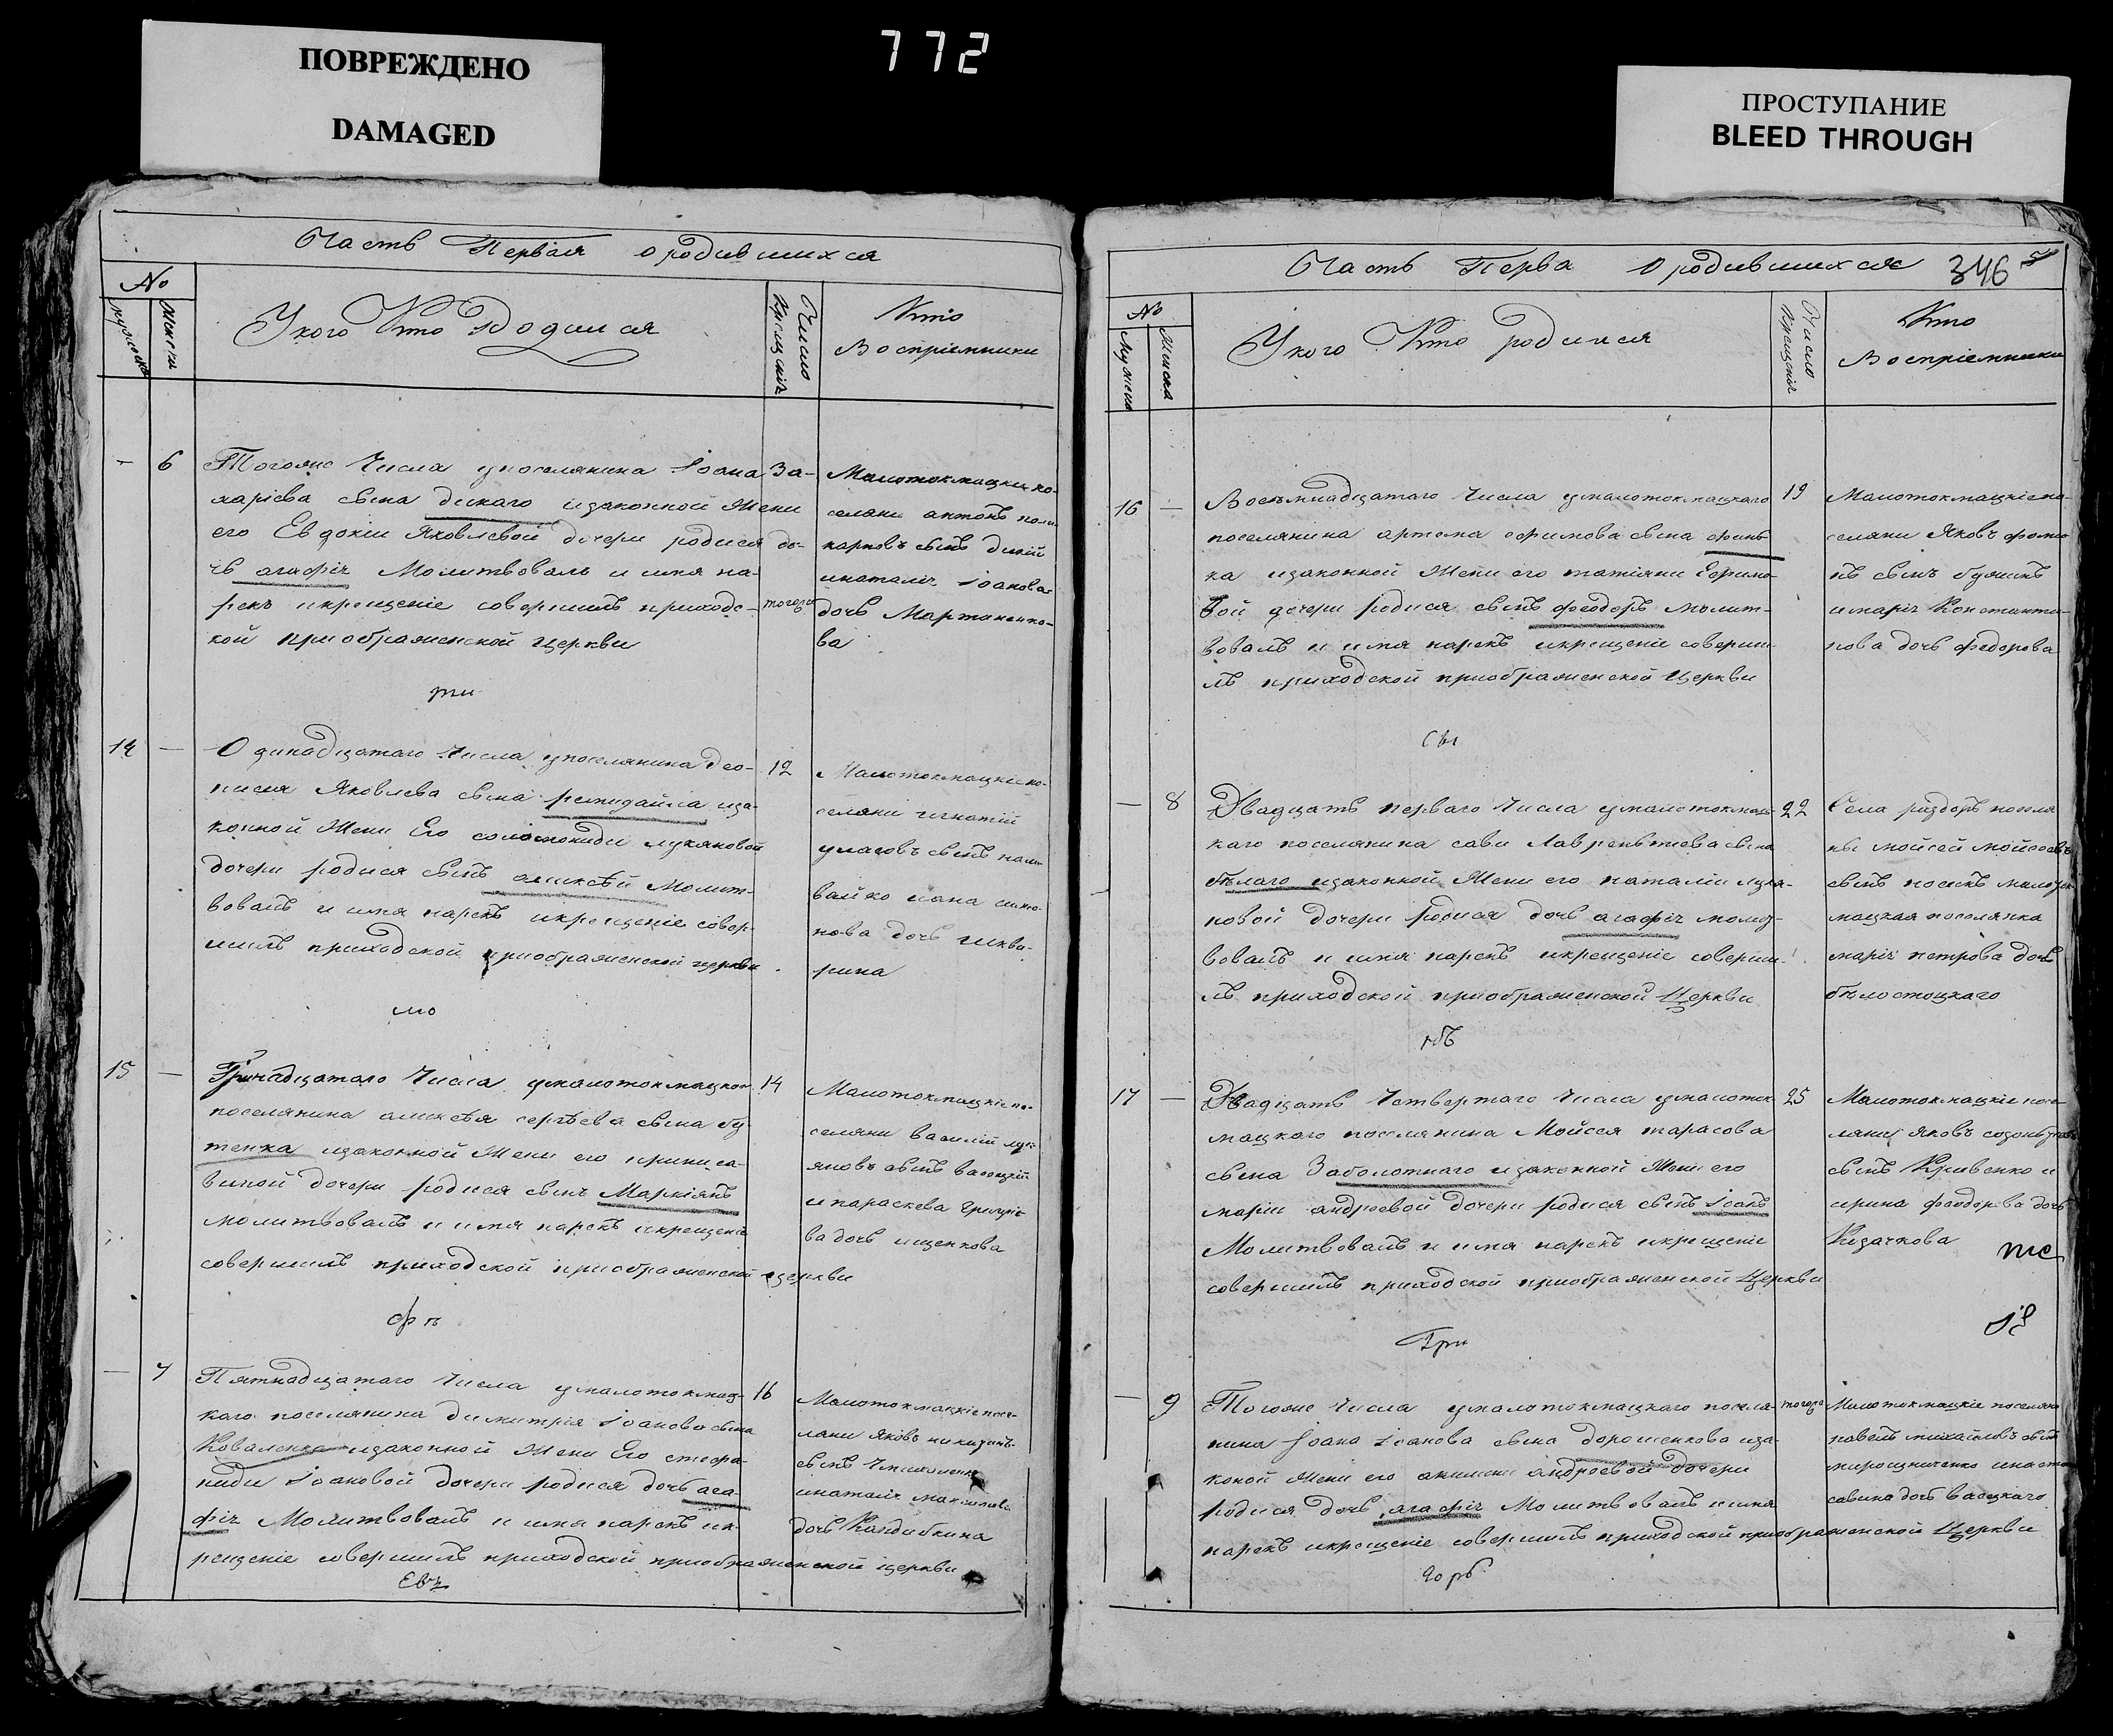 ПОВРЕЖДЕНО
DAMAGED
772
ПРОСТУПАНИЕ
BLEED THROUGH
Часть Первая о родившихся
No
мужеска
женска
У кого Кто Родился
Число Крещенія
Кто
Воспріемники
- 6
Тогоже Числа у поселянина Іоана За-
харіева сына дикаго изаконной Жени
его Евдокіи Яковлевой дочери родися до-
чь агафія Молитвовалъ и имя на-
рекъ икрещеніе совершилъ приходс-
кой приображенской церкви
тогоже
Малотокмацкие по-
селяни антонъ поли-
карповъ сынъ дикій
инаталія Іоанова
дочь Мартиненко-
ва
14 -
Одинадцатаго Числа у поселянина део-
нисия Яковлева сына изак-
конной Жени Его соломониди лукяновой
дочери родися сынъ аликсѣй Молит-
вовалъ и имя нарекъ икрещеніе совер-
шилъ приходской приображенской церкви
12
Малотокмацкие по-
селяни игнатій
сынъ нали-
вайко иана симо-
нова дочь чикви-
рина
15 -
Тринадцатаго Числа умалотокмацкаго
поселянина аликсѣя сергѣева сына бу
тенка изаконной Жени его ирини са-
виной дочери родися сынъ Маркіянъ
молитвовалъ и имя нарекъ икрещеніе
совершилъ приходской приображенской церкви
14
Малотокмацкіе по-
селяни василій лук-
яновъ сынъ васецкій
и параскева григоріе
ва дочь ищенкова
- 7
Пятнадцатаго Числа умалотокмац-
каго поселянина димитрія Іоанова сына
Коваленка изаконной Жени Его стефа-
ниди Іоановой дочери родися дочь ага-
фія Молитвовалъ и имя нарекъ ик-
рещеніе совершилъ приходской приображенской церкви
16
Малотокмацкіе посе-
ляни Яковъ никитинъ
сынъ
инаталія максимова
дочь Кандибкина
Часть Перва О родившихся 346
No
Мужеска
Женска
У кого Кто родился
Число крещенія
Кто
Воспріемники
16 -
Восьмнадцатаго Числа умалотокмацкаго
поселянина артема ефимова сына
ка изаконной Жени его татіяни Ефимо-
вой дочери родися сынъ феодоръ молит-
вовалъ и имя нарекъ икрещеніе соверши-
лъ приходской приображенской Церкви
19
Малотокмацкіе по-
селяни Яковъ фоми
нъ сынъ
имарія Константи-
нова дочь федорова
- 8
Двадцать перваго Числа умалотокмац-
каго поселянина сави Лаврентіева сына
бѣлаго изаконной Жени его наталіи лукя-
новой дочери родися дочь агафія молит-
вовалъ и имя нарекъ икрещеніе соверши-
лъ приходской приображенской Церкви
22
Села поселя
сынъ носекъ малоток-
мацкая поселянка
марія петрова дочь
бѣлостоцкаго
17 -
Двадцать Четвертаго Числа умалоток-
мацкаго поселянина Мойсея тарасова
сына Заболотнаго изаконной Жени его
маріи андреевой дочери родися сынъ Іоанъ
Молитвовалъ и имя нарекъ икрещеніе
совершилъ приходской приображенской Церкви
25
Малотокмацкіе посе-
ляни Яковъ
сынъ Кривенко и
ирина феодорова дочь
Казачкова
- 9
Тогоже Числа умалотокмацкаго поселя-
нина Іоана Іоанова сына дорошенкова иза-
коной Жени его андреевой дочери
родися дочь агафія Молитвовалъ и имя
нарекъ икрещеніе совершилъ приходской приображенской Церкви
тогоже
Малотокмацкіе поселяни
павелъ михайловъ сынъ
мирошниченко
савина дочь васецкаго